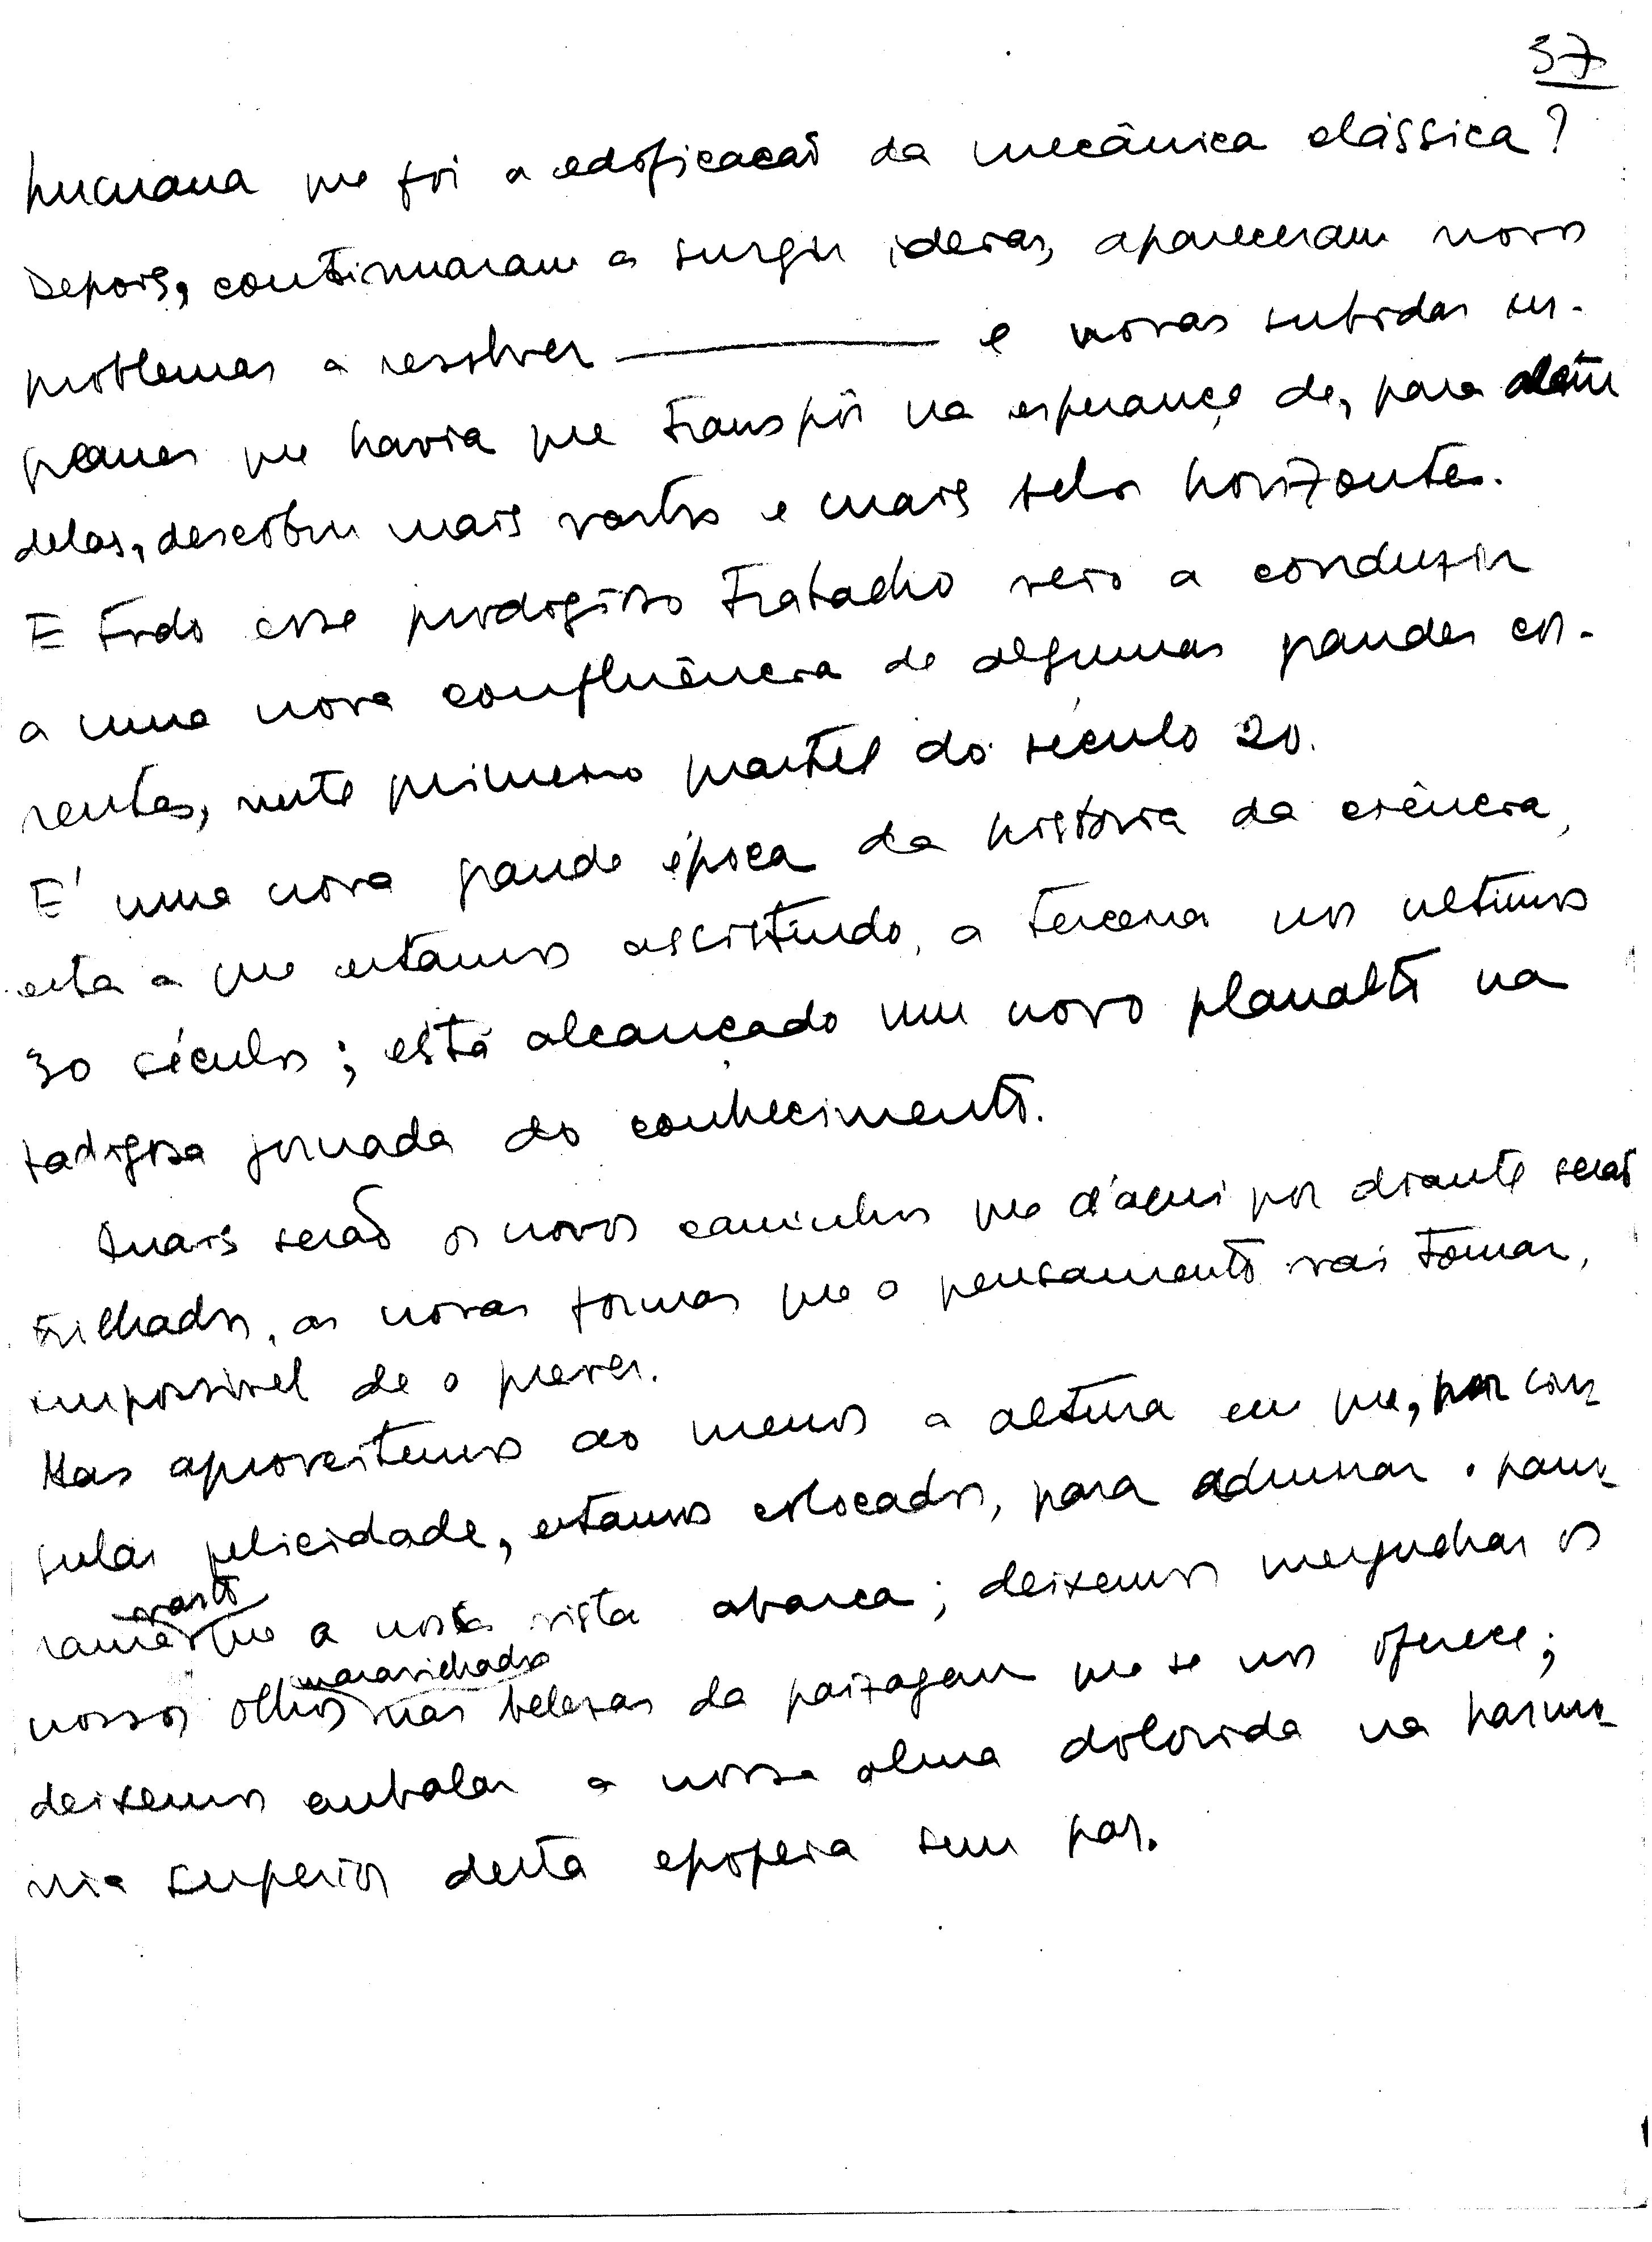 37
humana que foi a edificação da mecânica clássica?
Depois, continuaram a surgir ideias, apareceram novos
problemas a resolver ——— e novas subidas ín-
gremes que havia que transpôr na esperança de, para além
delas, descobrir mais vastos e mais belos horizontes.
E todo esse prodigioso trabalho veio a conduzir
a uma nova confluência de algumas grandes cor-
rentes, neste primeiro quartel do século 20.
E' uma nova grande época da história da ciência,
esta a que estamos assistindo, a terceira nos ultimos
30 séculos; está alcançado um novo planalto na
fadigosa jornada do conhecimento.
Quais serão os novos caminhos que d'aqui por diante serão
trilhados, as novas formas que o pensamento vai tomar,
impossivel de o prever.
Mas aproveitemos ao menos a altura em que, por sin-
gular felicidade, estamos colocados, para admirar o pano-
vasto
rama que a nossa vista abarca; deixemos mergulhar os
maravilhados
nossos olhos nas belezas da paizagem que se nos oferece;
deixemos embalar a nossa alma dolorida na harmo-
nia superior desta epopeia sem par.